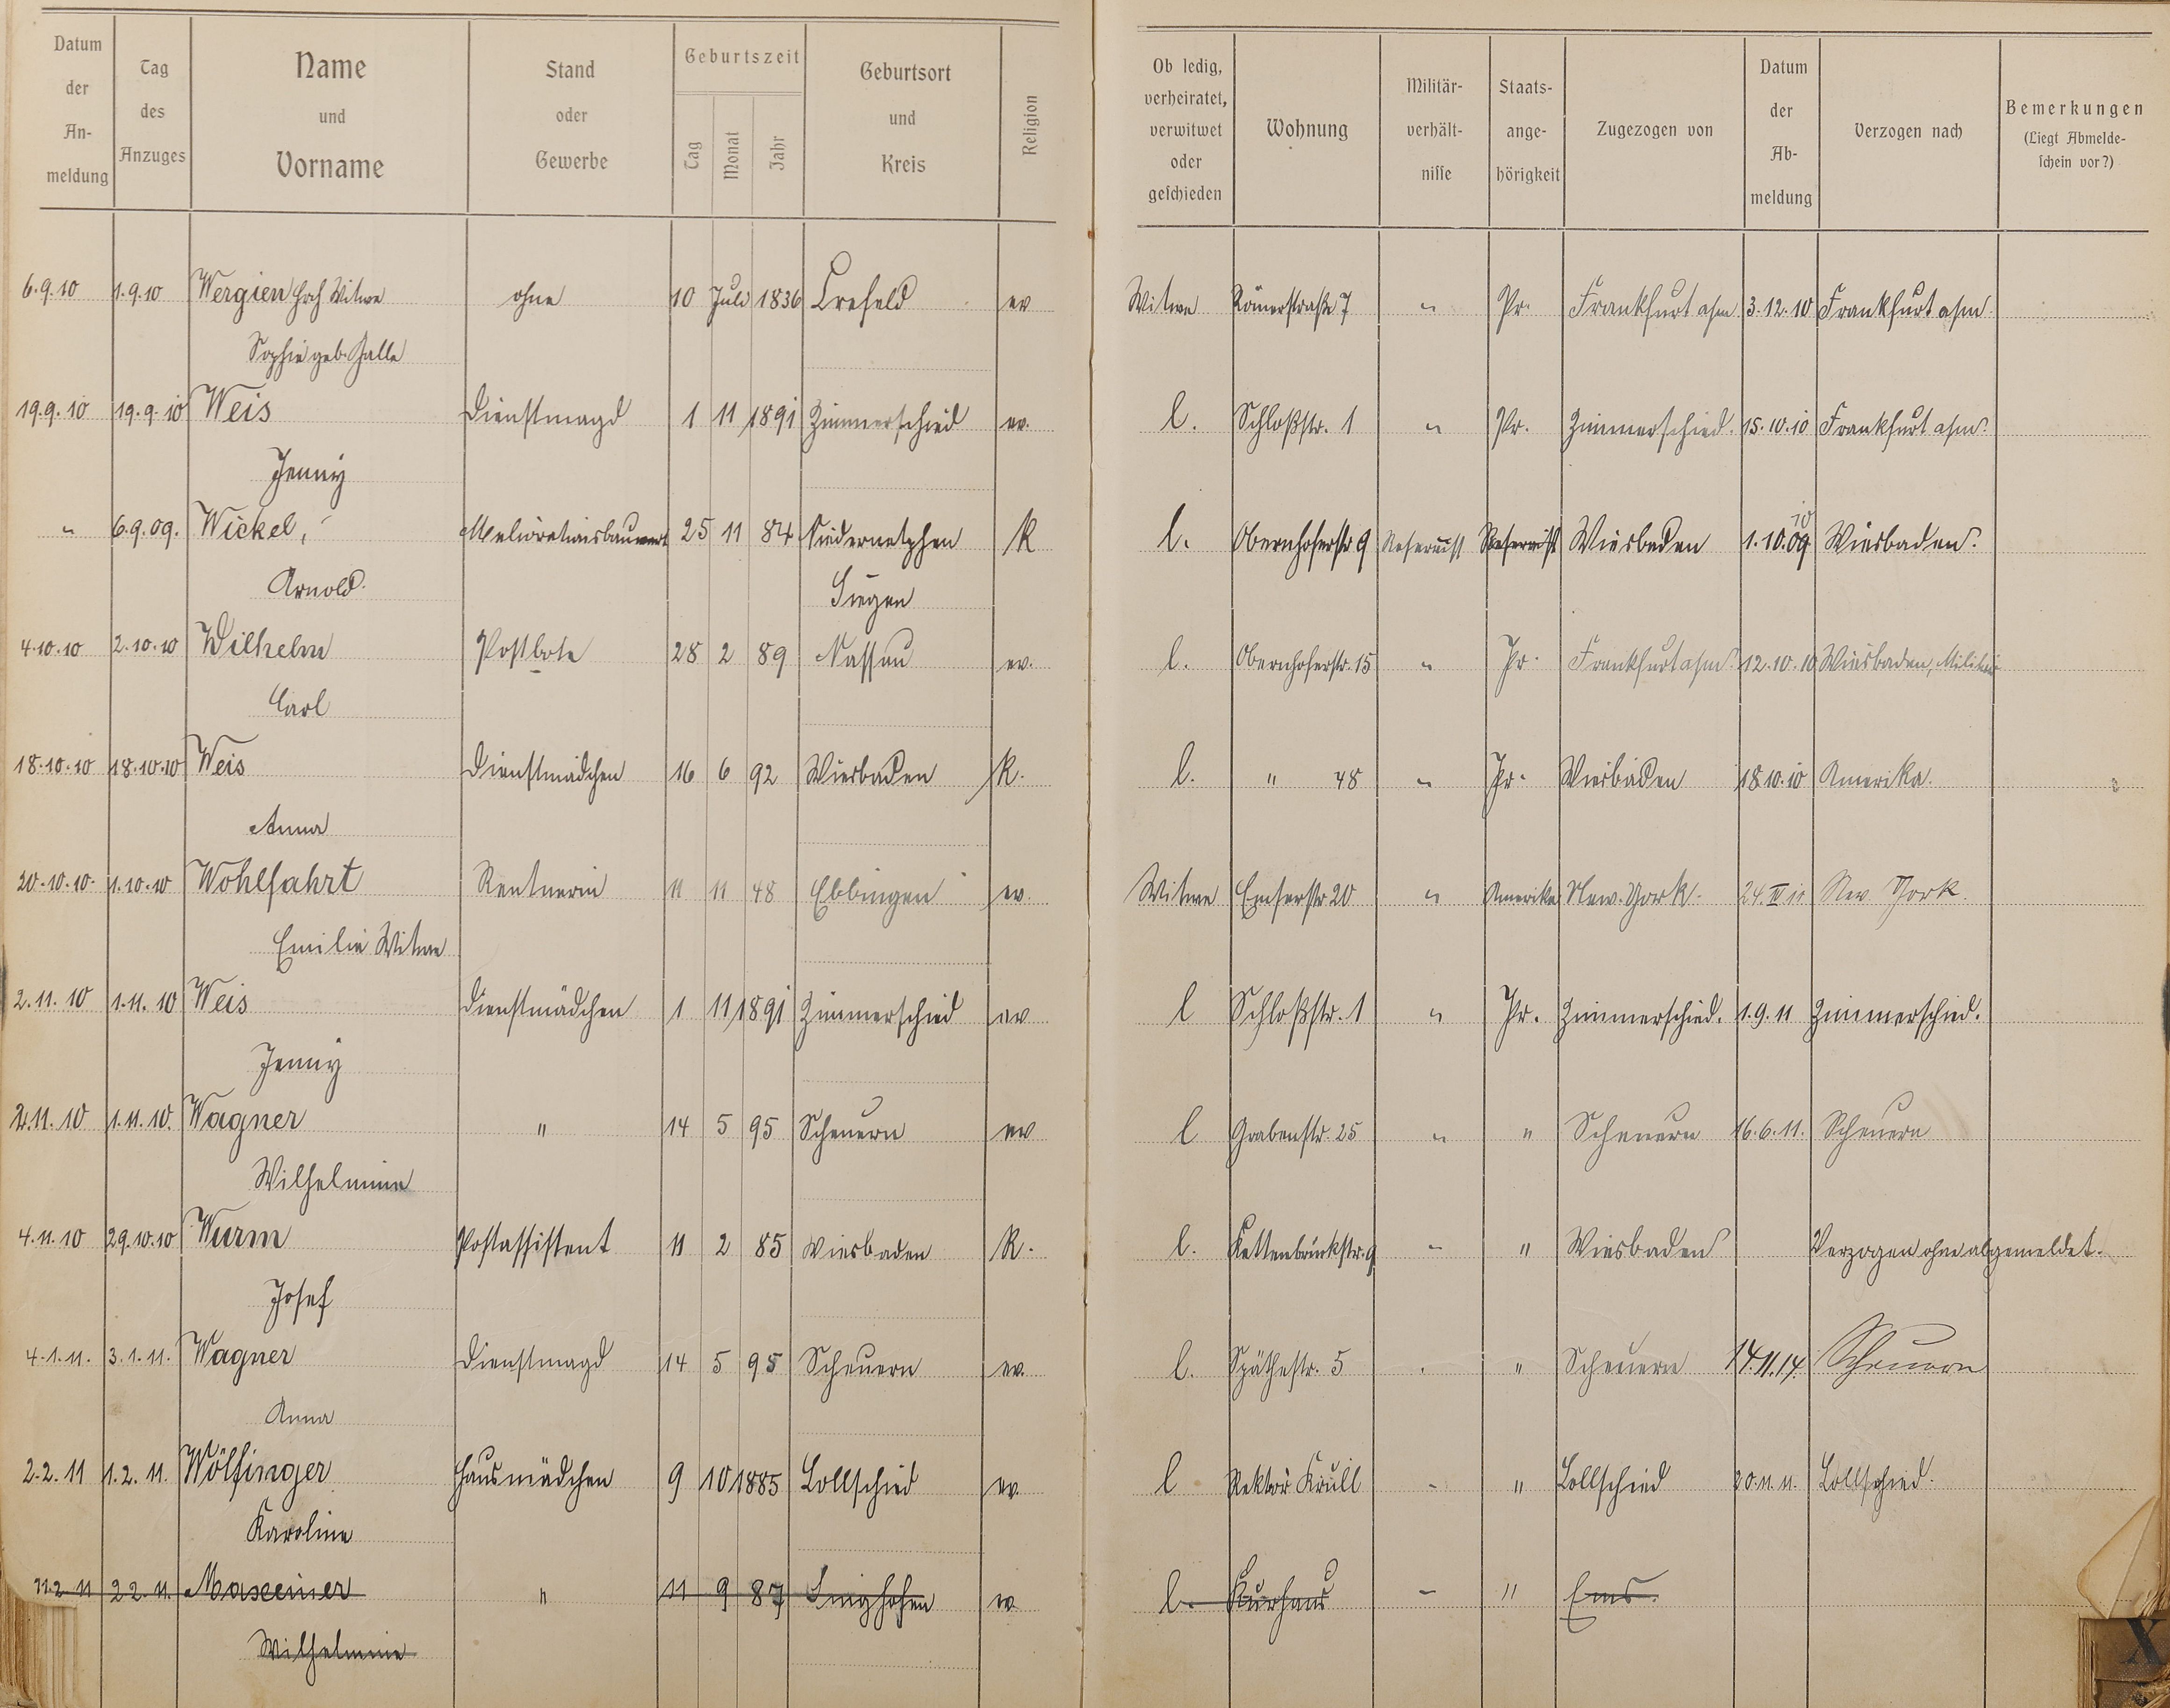 Datum der An-meldung | Tag des Anzuges | Name und Vorname | Stand oder Gewerbe | Geburtszeit Tag Monat Jahr | Geburtsort und Kreis | Religion | Ob ledig, verheiratet, verwitwet oder geschieden | Wohnung | Militär-verhält-nisse | Staats-ange-hörigkeit | Zugezogen von | Datum der Ab-meldung | Verzogen nach | Bemerkungen (Liegt Abmelde-schein vor?)
6.9.10 1.9.10 Wergien Witwe ohne 10 Juli 1836 Crefeld ev Witwe Römerstraße 7 " Pr. Frankfurt a/m. 3.12.10 Frankfurt a/m.
Sophie geb.
19.9.10 19.9.10 Weis Dienstmagd 1 11 1891 Zimmerschied ev. l. Schloßstr. 1 " Pr. Zimmerschied. 15.10.10 Frankfurt a/m.
Jenny
" 6.9.09. Wickel, Meliorationsbauwart 25 11 84 Niedernetphen K l. Obernhoferstr 9 Reservist Wiesbaden 1.10.09 10 Wiesbaden.
Arnold. Siegen
4.10.10 2.10.10 Wilhelm Postbote 28 2 89 Nassau ev. l. Obernhoferstr. 15 " Pr. Frankfurt a/m. 12.10.10 Wiesbaden, Militär
Carl
18.10.10 18.10.10 Weis Dienstmädchen 16 6 92 Wiesbaden K. l. " 48 " Pr. Wiesbaden 18.10.10 Amerika.
Anna
20.10.10. 1.10.10 Wohlfahrt Rentnerin 11 11 48 Ebbingen ev. Witwe Emserstr 20 " Amerika New-York. 24. New York.
Emilie Witwe
2.11.10 1.11.10 Weis Dienstmädchen 1 11 1891 Zimmerschied ev l Schloßstr. 1 " Pr. Zimmerschied. 1.9.11 Zimmerschied.
Jenny
2.11.10 1.11.10. Wagner " 14 5 95 Scheuern ev l Grabenstr. 25 " " Scheuern 16.6.11. Scheuern
Wilhelmine
4.11.10 29.10.10 Wurm Postassistent 11 2 85 Wiesbaden K. l. Kettenbrückstr. 9 - " Wiesbaden Verzogen ohne abgemeldet.
Josef
4.1.11. 3.1.11. Wagner Dienstmagd 14 5 95 Scheuern ev. l. Späthestr. 5 " Scheuern 14.11.14. Scheuern
Anna
2.2.11 1.2.11. Wölfinger Hausmädchen 9 10 1885 Lollschied ev. l Rektor Krüll - " Lollschied 20.11.11. Lollschied.
Karoline
11.2.11 2 2.11. Maxeiner " 11 9 87 Singhofen ev l. Kurhaus - " Ems.
Wilhelmine
X